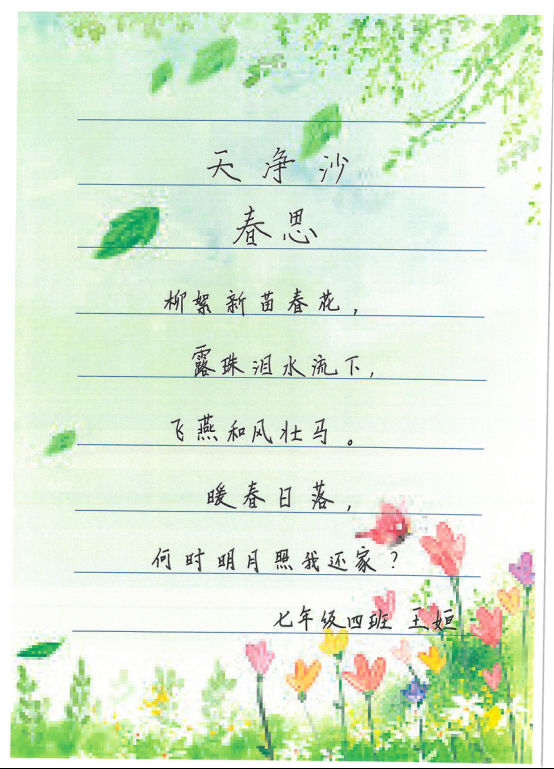 天净沙
春思
柳絮新苗春花，
露珠泪水流下，
飞燕和风壮马。
暖春日落，
何时明月照我还家？
七年级四班 王姮